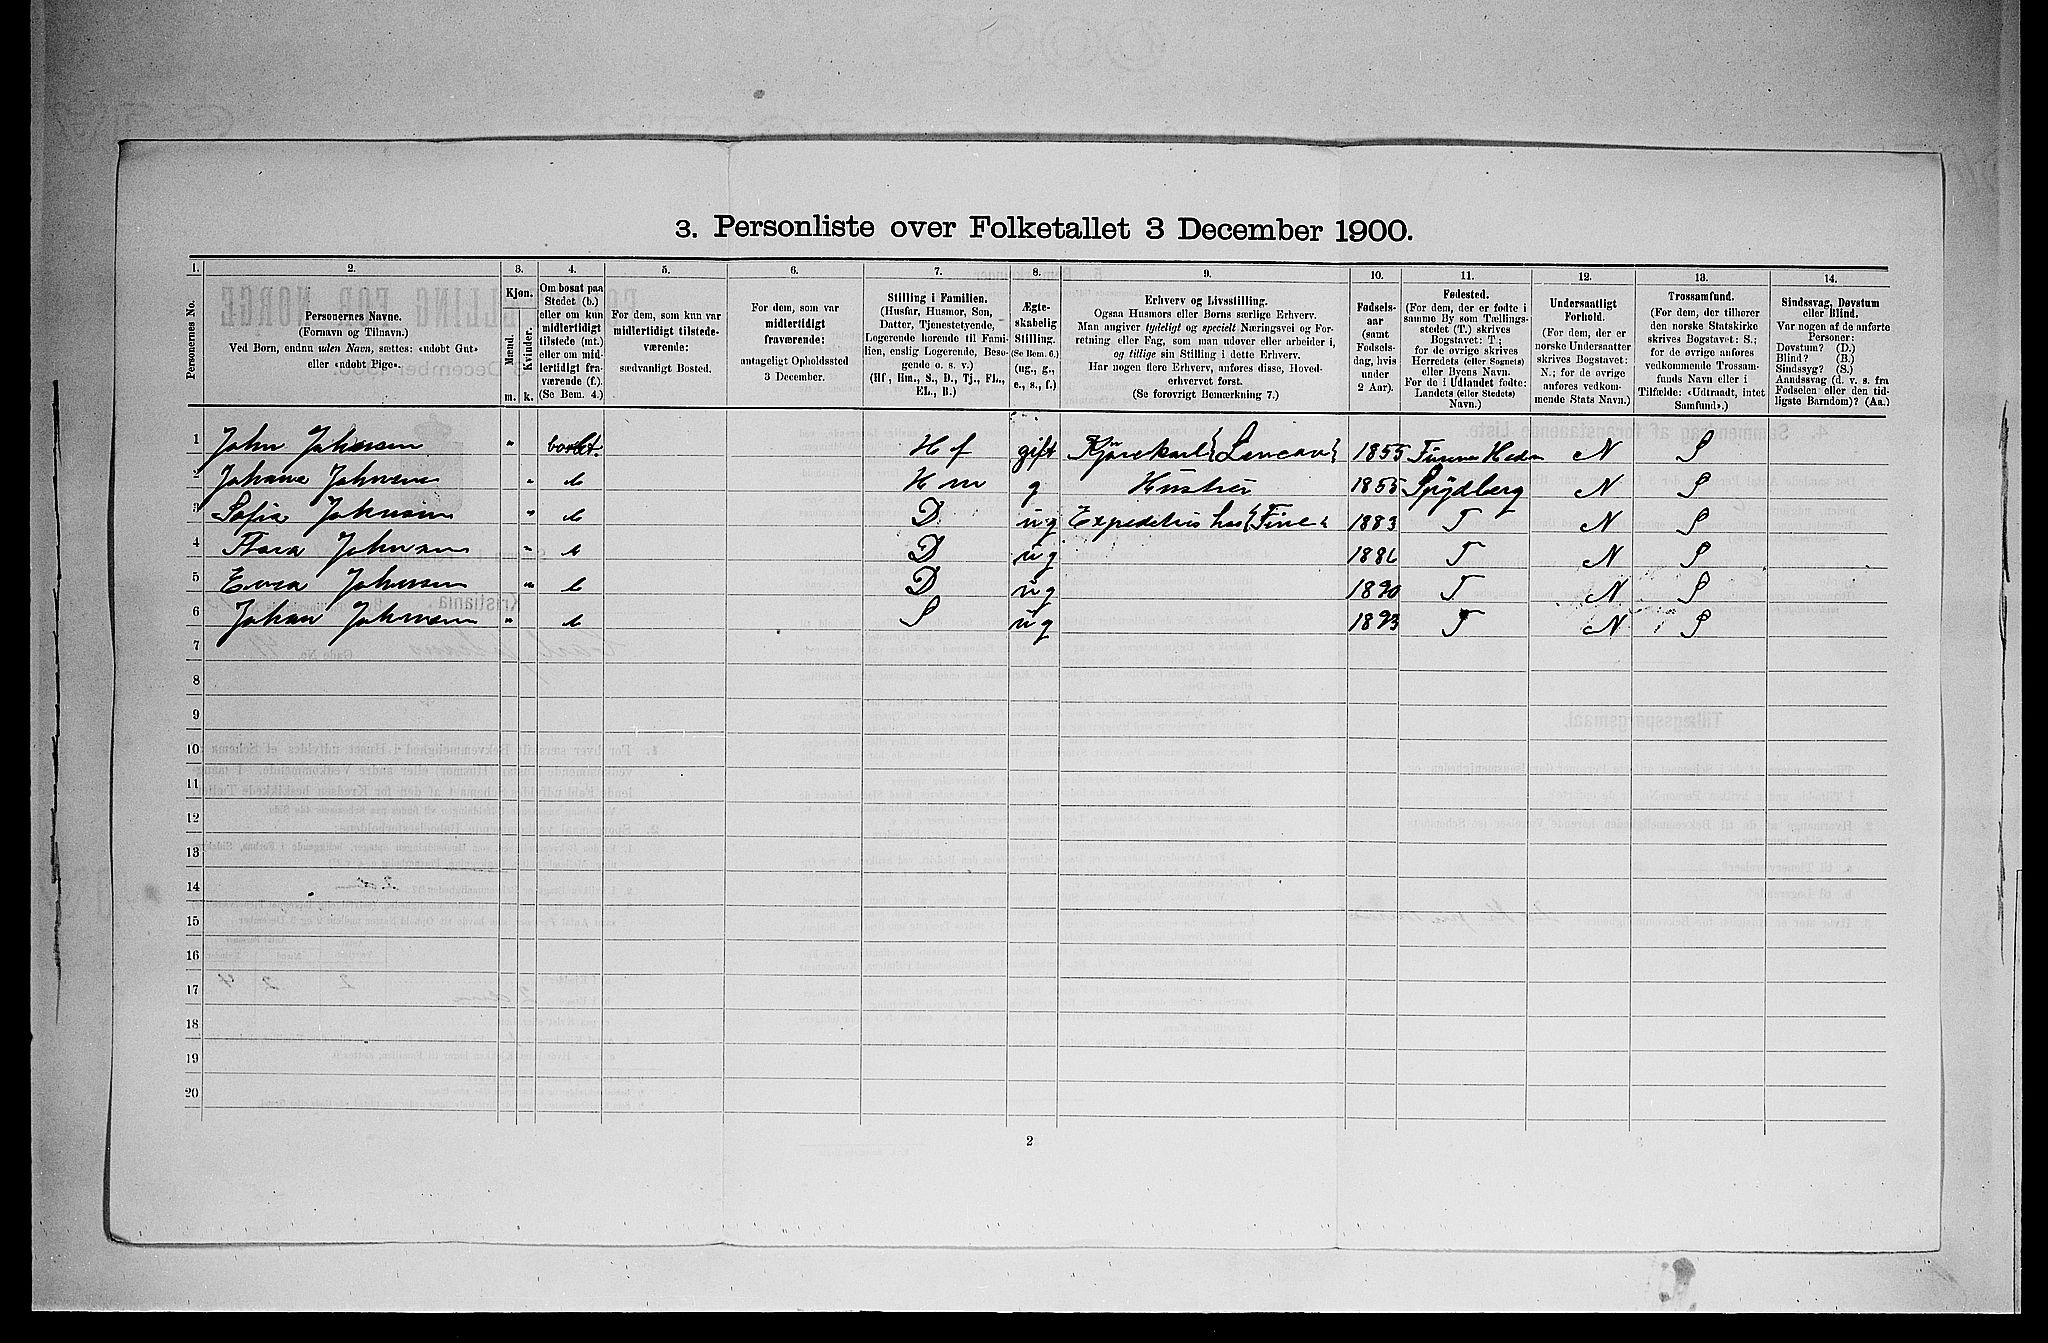 3. Personliste over Folketallet 3 December 1900.
1. 2. 3. 4. 5. 6. 7. 8. 9. 10. 11. 12. 13. 14.
Personernes No.
Personernes Navne.
(Fornavn og Tilnavn.)
Ved Børn, endnu uden Navn, sættes: «udøbt Gut»
eller «udøbt Pige».
Kjøn.
Mænd.
Kvinder.
m. k.
Om bosat paa
Stedet (b.)
eller om kun
midlertidigt
tilstede (mt.)
eller om mid-
lertidigt fra-
værende (f.)
(Se Bem. 4.)
For dem, som kun var
midlertidigt tilstede-
værende:
sædvanligt Bosted.
For dem, som var
midlertidigt
fraværende:
antageligt Opholdssted
3 December.
Stilling i Familien.
(Husfar, Husmor, Søn,
Datter, Tjenestetyende,
Logerende hørende til Fami-
lien, enslig Logerende, Besø-
gende o. s. v.)
(Hf, Hm., S., D., Tj., FL.,
EL., B.)
Ægte-
skabelig
Stilling.
(Se Bem. 6.)
(ug., g.,
e., s., f.)
Erhverv og Livsstilling.
Ogsaa Husmors eller Børns særlige Erhverv.
Man angiver tydeligt og specielt Næringsvei og For-
retning eller Fag, som man udøver eller arbeider i,
og tillige sin Stilling i dette Erhverv.
Har nogen flere Erhverv, anføres disse, Hoved-
erhvervet først.
(Se forøvrigt Bemærkning 7.)
Fødsels-
aar
(samt
Fødsels-
dag, hvis
under
2 Aar).
Fødested.
(For dem, der er fødte i
samme By som Tællings-
stedet (T.) skrives
Bogstavet: T.;
for de øvrige skrives
Herredets (eller Sognets)
eller Byens Navn.
For de i Udlandet fødte:
Landets (eller Stedets)
Navn.)
Undersaatligt
Forhold.
(For dem, der er
norske Undersaatter
skrives Bogstavet:
N.; for de øvrige
anføres vedkom-
mende Stats Navn.)
Trossamfund.
(For dem, der tilhører
den norske Statskirke
skrives Bogstavet: S.;
for de øvrige anføres
vedkommende Trossam-
funds Navn eller i
Tilfælde: «Udtraadt, intet
Samfund».)
Sindssvag, Døvstum
eller Blind.
Var nogen af de anførte
Personer:
Døvstum? (D.)
Blind? (B.)
Sindssyg? (S.)
Aandssvag (d. v. s. fra
Fødselen eller den tid-
ligste Barndom)? (Aa.)
1 John Johnsen " bosat. Hf gift Kjørekarl 1855 N S
2 Johane Johnsen " b Hm g Hustru 1855 Spydberg N S
3 Sofie Johnsen " b D ug 1883 T N S
4 Johnsen " b D ug 1886 T N S
5 Johnsen " b D ug 1890 T N S
6 Johan Johnsen " b S ug 1893 T N S
7
8
9
10
11
12
13
14
15
16
17
18
19
20
2